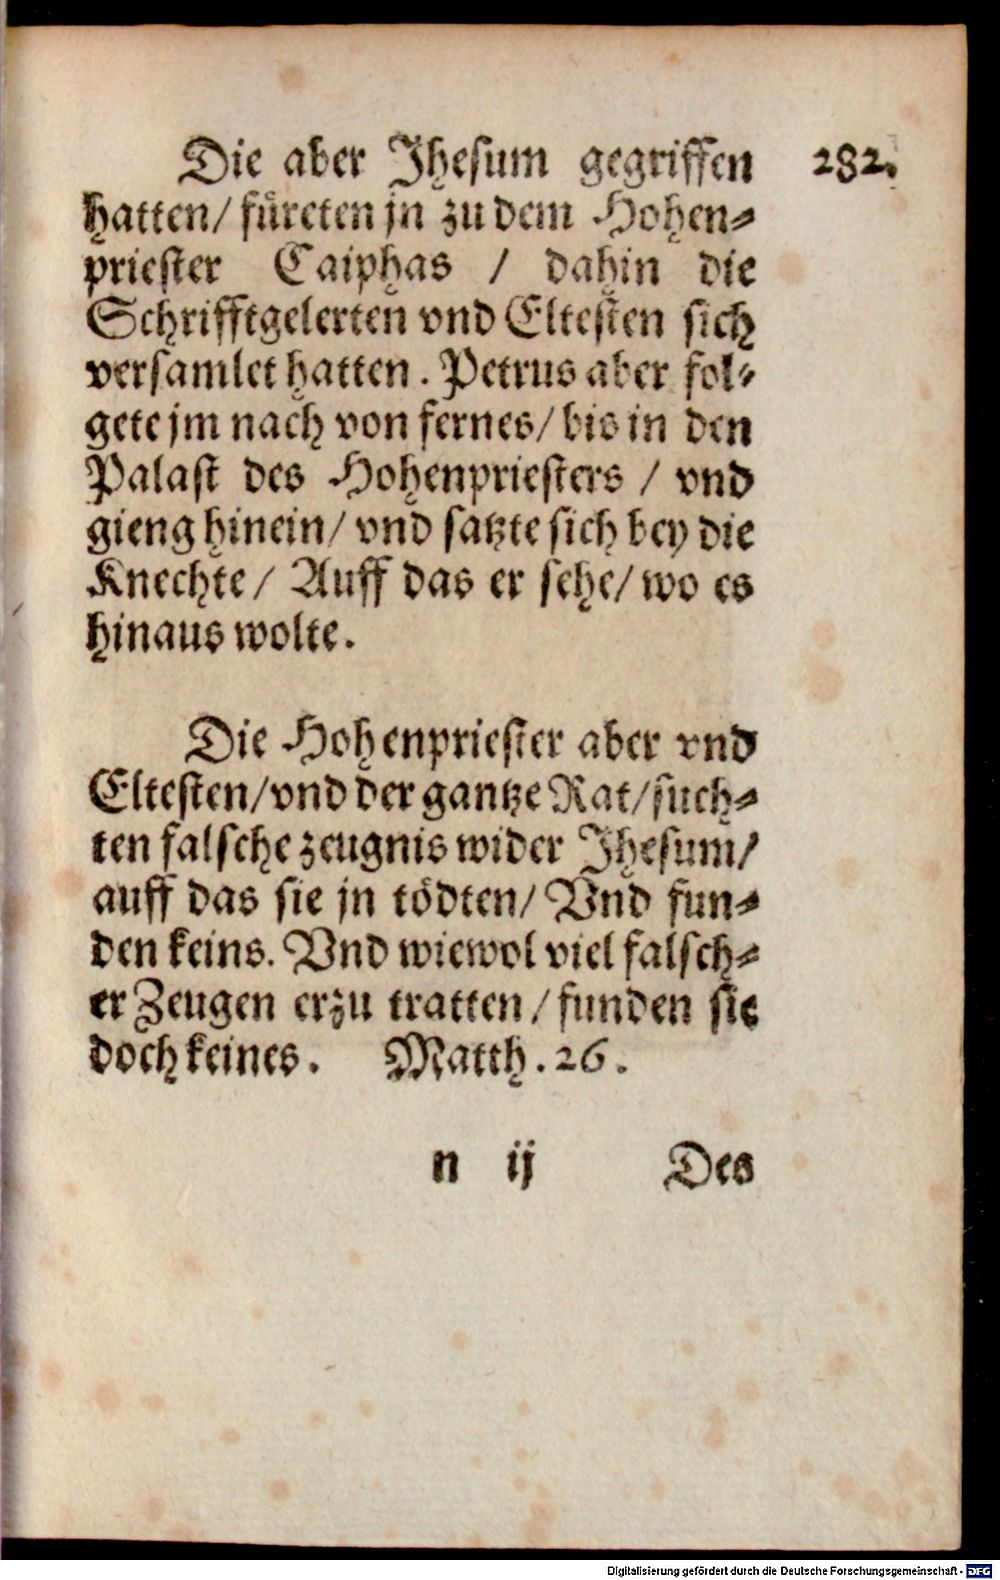 Die aber Jhesum gegriffen 282.
hatten/ füreten jn zu dem Hohen⸗
priester Caiphas / dahin die
Schrifftgelerten vnd Eltesten sich
versamlet hatten. Petrus aber fol⸗
gete jm nach von fernes/ bis in den
Palast des Hohenpriesters / vnd
gieng hinein/ vnd satzte sich bey die
Knechte/ Auff das er sehe/ wo es
hinaus wolte.
Die Hohenpriester aber vnd
Eltesten/ vnd der gantze Rat/ such⸗
ten falsche zeugnis wider Jhesum/
auff das sie jn tödten/ Vnd fun⸗
den keins. Vnd wiewol viel falsch⸗
er Zeugen erzu tratten / funden sie
doch keines. Matth. 26.
n ij Des
Digitalisierung gefördert durch die Deutsche Forschungsgemeinschaft - DFG